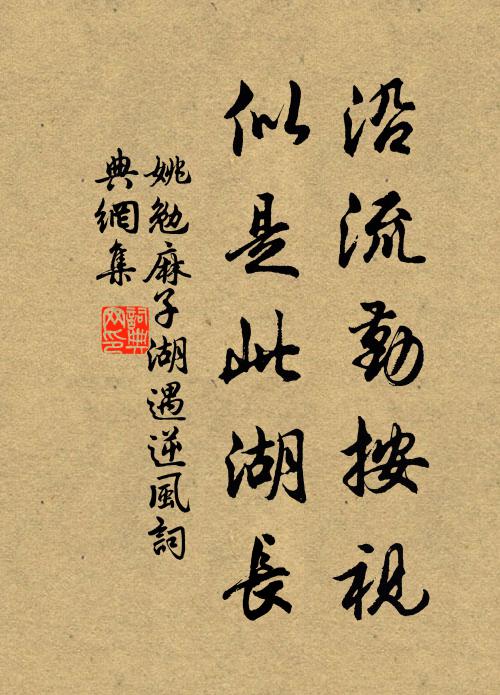 沿流勤按視
似是此湖長
姚勉麻子湖遇逆風詞
典網集
詞典
网印